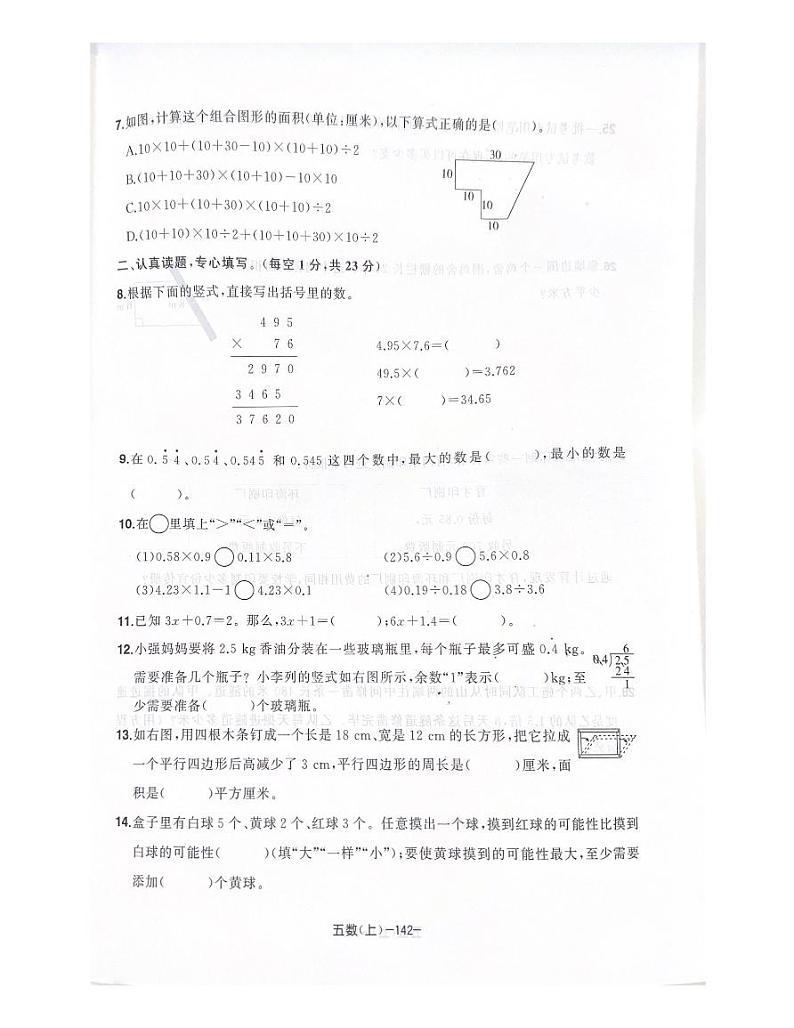 7.如图,计算这个组合图形的面积(单位:厘米),以下算式正确的是(  )。
A.10×10+(10+30-10)×(10+10)÷2
B.(10+10+30)×(10+10)-10×10
C.10×10+(10+30)×(10+10)÷2
D.(10+10)×10÷2+(10+10+30)×10÷2
30
10
10
10
10
二、认真读题,专心填写。(每空1分,共23分)
8.根据下面的竖式,直接写出括号里的数。
495
× 76
2970
3465
37620
4.95×7.6=(  )
49.5×(  )=3.762
7×(  )=34.65
9.在0.5̇4̇、0.54̇、0.545̇ 和 0.545 这四个数中,最大的数是(  ),最小的数是
(  )。
10.在○里填上“>”“<”或“=”。
(1)0.58×0.9○0.11×5.8 (2)5.6÷0.9○5.6×0.8
(3)4.23×1.1-1○4.23×0.1 (4)0.19÷0.18○3.8÷3.6
11.已知3x+0.7=2。那么,3x+1=(  );6x+1.4=(  )。
12.小强妈妈要将2.5 kg香油分装在一些玻璃瓶里,每个瓶子最多可盛0.4 kg。
需要准备几个瓶子?小李列的竖式如右图所示,余数“1”表示(  )kg;至
少需要准备(  )个玻璃瓶。
6
0.4)2.5
24
1
13.如右图,用四根木条钉成一个长是18 cm、宽是12 cm的长方形,把它拉成
一个平行四边形后高减少了3 cm,平行四边形的周长是(  )厘米,面
积是(  )平方厘米。
14.盒子里有白球5个、黄球2个、红球3个。任意摸出一个球,摸到红球的可能性比摸到
白球的可能性(  )(填“大”“一样”“小”);要使黄球摸到的可能性最大,至少需要
添加(  )个黄球。
五数(上)-142-